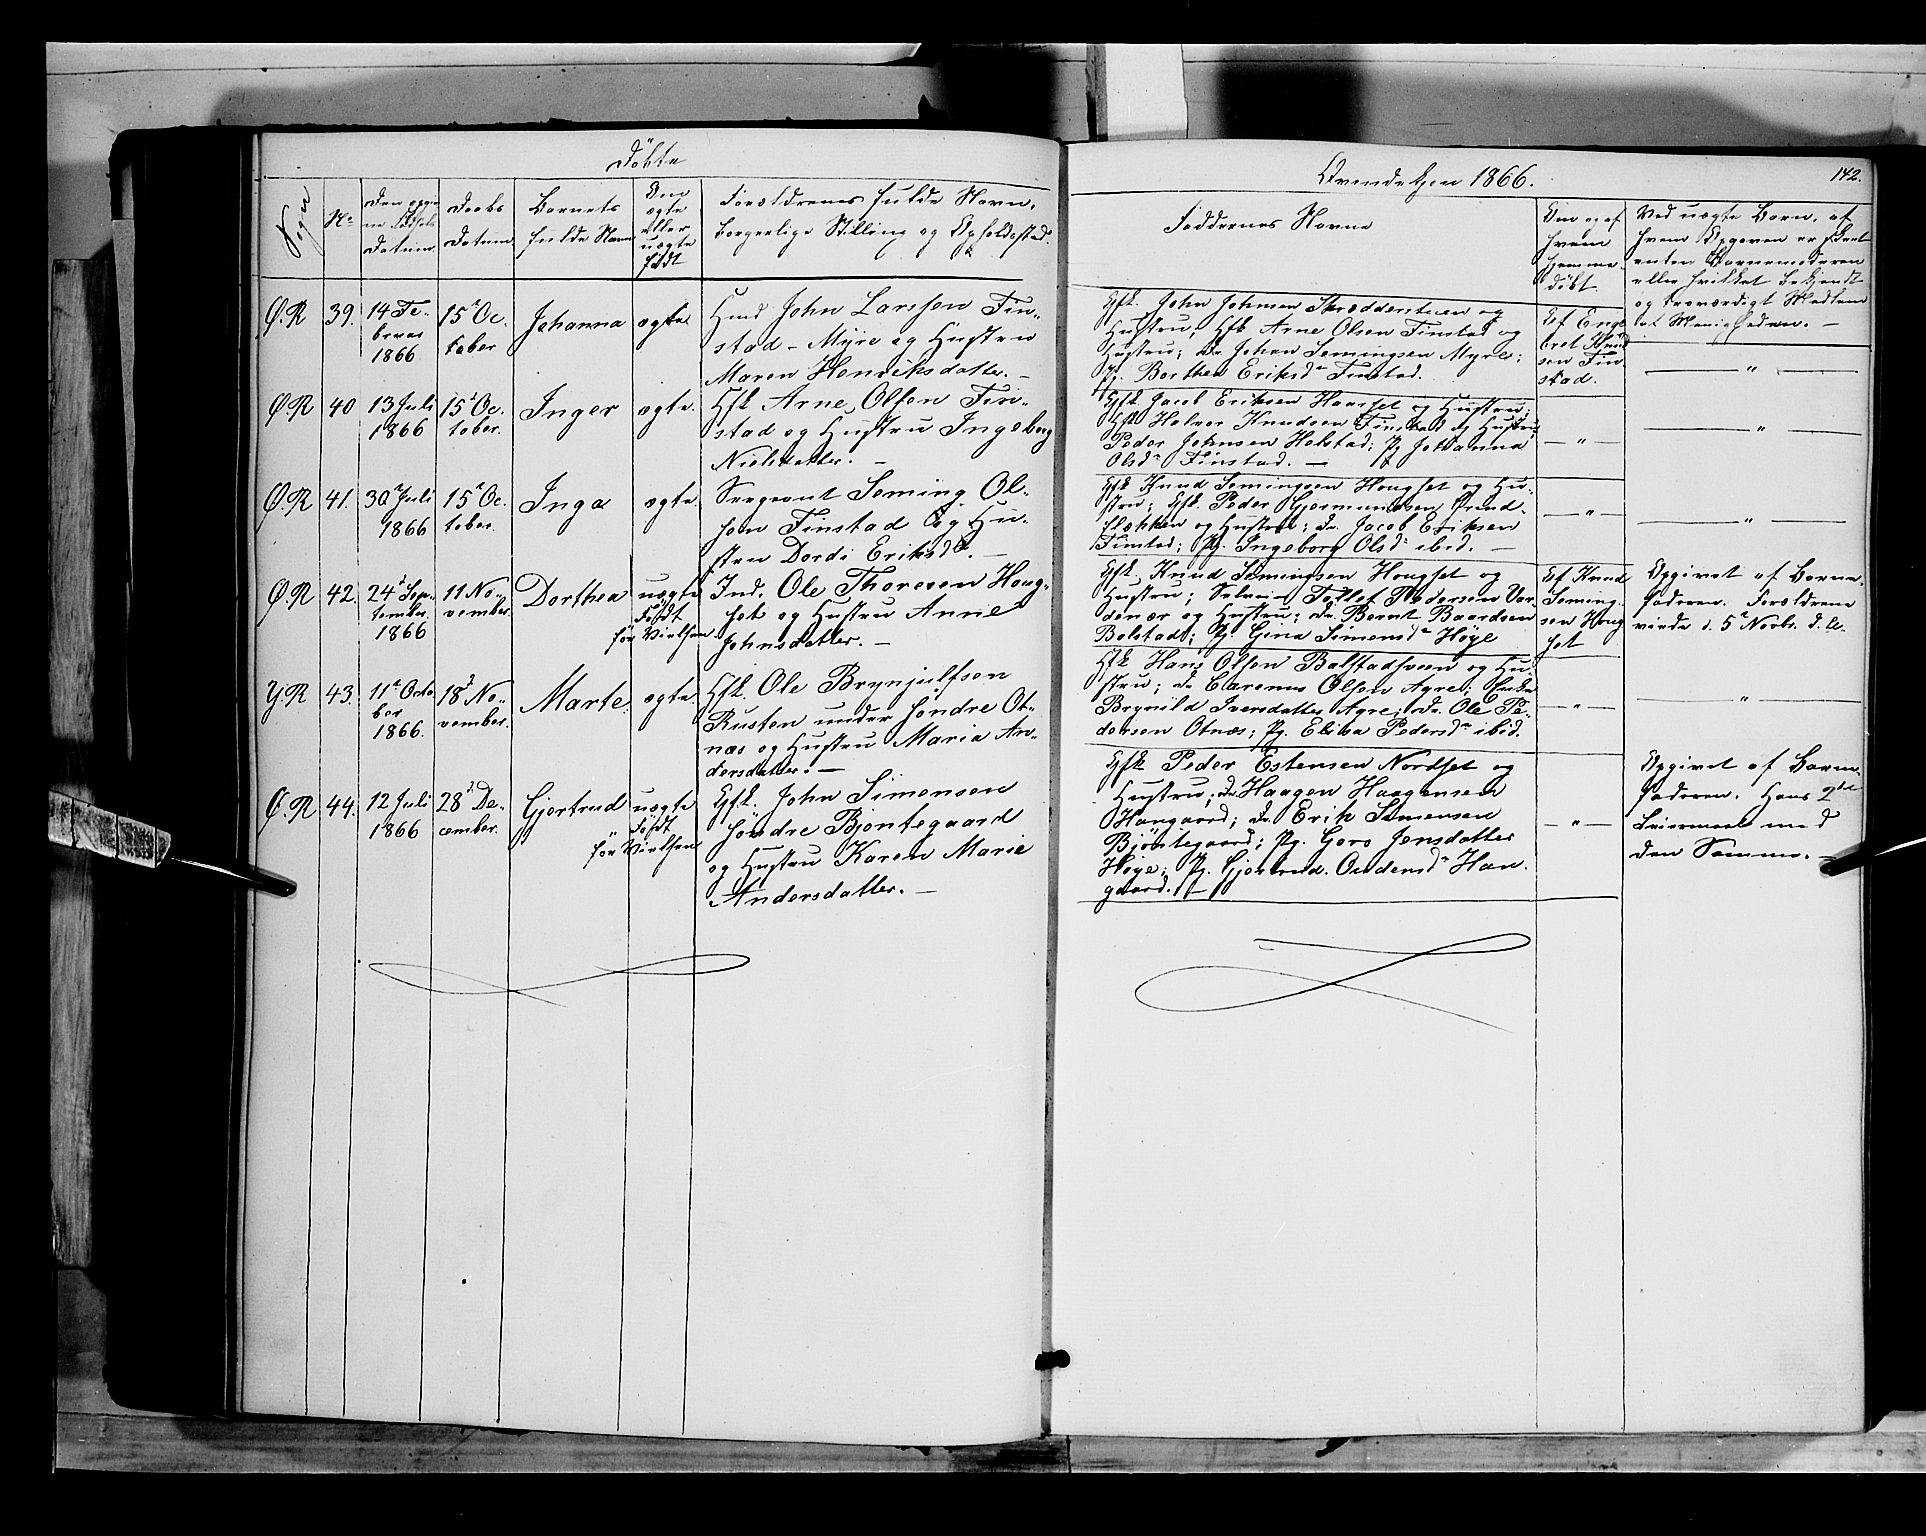 Døbte
Qvindekjøn 1866.
142.
Sogn
No
Den opgivne Fødsels Datum
Daabs Datum
Barnets fulde Navn
Om ægte eller uægte født
Forældrenes fulde Navn,
borgerlige Stilling og Opholdssted.
Faddernes Navne
Om og af hvem hjemmedøbt
Ved uægte Børn, af
hvem Opgaven er skeet
enten Barnemoderen
eller hvilket bekjendt
og troværdigt Medlem
af Menigheden. —
Ø.R 39. 14 Februar 1866 15de October Johanna ægte
Husmd John Larssen Fin-
stad - Myre og Hustru
Maren Henriksdatter. —
Gfb. John Johnsen Skræddersteen og
Hustru; Gfb Arne Olsen Finstad og
Hustru; Dr Johan Semingsen Myre;
Pg. Berthea Eriksdr Finstad.
Af Enge-
bret Knud-
sen Fin-
stad.
— " —
Ø.R 40 13 Juli 1866 15de October. Inger ægte.
Gfb Arne Olsen Fin-
stad og Hustru Ingeborg
Nielsdatter. —
Gfb. Jacob Eriksen Haarset og Hustru;
Gfb Halvor Knudsen Finstad og Hustru;
Peder Johnsen Holstad; Pg Johanna
Olsdr Finstad. —
— " —
— " —
Ø.R 41. 30te Juli 1866 15de October. Inga ægte.
Sergeant Seming Ol-
sen Finstad og Hu-
stru Dordi Eriksdr. —
Gfb Knud Semingsen Hougset og Hu-
stru; Gfb. Peder Gjermundsen Grind-
flækken og Hustru; Dr. Jacob Eriksen
Finstad; Pg. Ingeborg Olsdr ibid. —
— " —
— " —
Ø.R 42. 24de September 1866 11 November. Dorthea uægte
Født
før Vielsen
Ind. Ole Thoresen Houg-
set og Hustru Anne
Johnsdatter. —
Gfb. Knud Semingsen Hougset og
Hustru; Selvei- Tollef Pedersen Var-
denær og Hustru; Dr. Bernt Baardsen
Bolstad; Pg. Gina Simensdr Høye
Af Knud
Seming-
sen Houg-
set
Opgivet af Barne-
faderen. Forældrene
viede d. 5te Novbr. d. A.
Y.R 43. 11te October 1866. 18de November. Marte. ægte.
Gfb. Ole Brynjulfsen
Rusten under søndre Ot-
næs og Hustru Maria An-
dersdatter. —
Gfb Hans Olsen Bolstadsveen og Hu-
stru; Dr Carenus Olsen Agre; Enke
Brynild Iversdatter Agre; Dr. Ole Pe-
dersen Otnæs; Pg. Elisa Pedersdr ibid.
— " —
— " —
Ø.R 44. 12 Juli 1866 28de December. Gjertrud uægte
Født
før Vielsen
Gfb. John Simensen
søndre Bjøntegaard
og Hustru Karen Marie
Andersdatter. —
Gfb Peder Estensen Nordset og
Hustru; Dr. Haagen Haagensen
Hangaard; Dr Erik Simensen
Bjøntegaard; Pg. Goro Jensdatter
Høye; Pg. Gjertrud Oudensdr Han-
gaard. —
— " —
Opgivet af Barne-
faderen. Hans 2det
Leiermaal med
den Samme. —